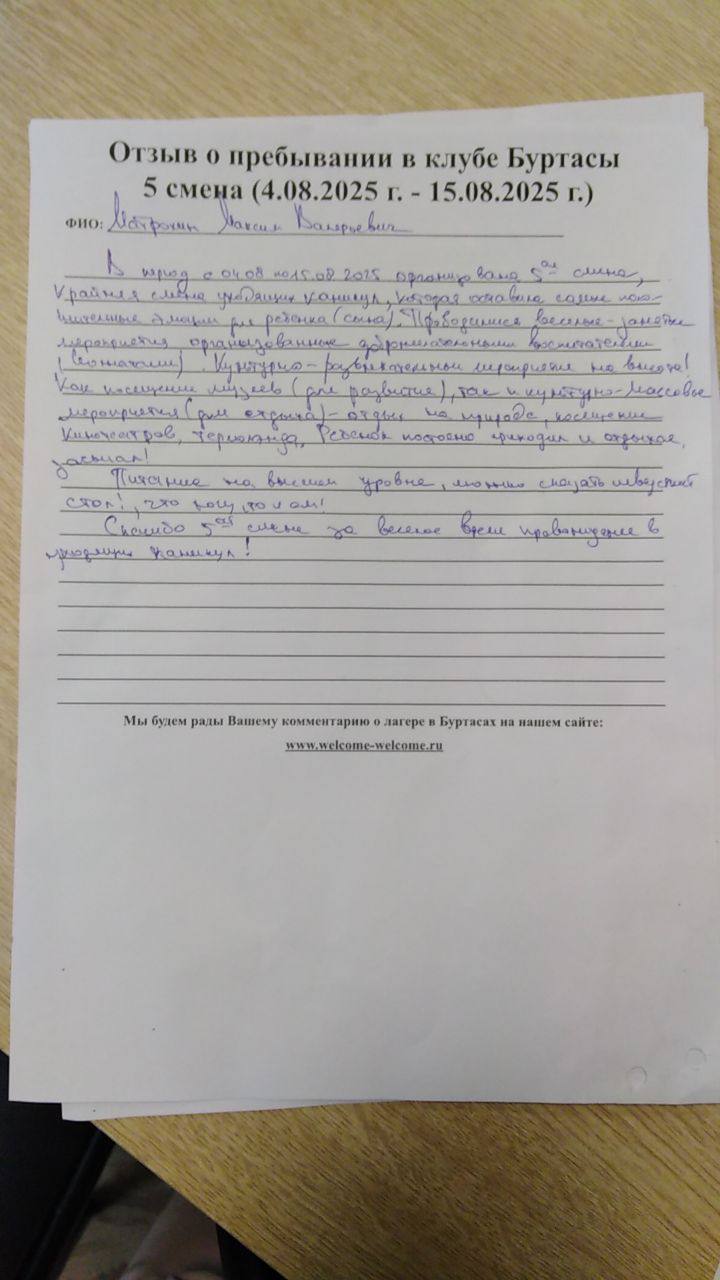 Отзыв о пребывании в клубе Буртасы
5 смена (4.08.2025 г. - 15.08.2025 г.)
ФИО: Матрохин Максим Валерьевич
В период с 04.08 по 15.08.2025 организована 5ая смена,
крайняя смена уходящих каникул, которая оставила самые поло-
жительные эмоции для ребенка (сына). Проводимися веселые - занятые
мероприятия организованные доброжелательными воспитателями
(вожатыми). Культурно - развлекательные мероприятие на высоте!
Как посещение музеев (для развития), так и культурно - массовые
мероприятия (для отдыха) - отдых на природе, посещение
кинотеатров, термолэнда, Ребенок приходил и
засыпал!
Питание на высшем уровне, можно сказать
стол!, что хочу, то и ем!
Спасибо 5ой смене за веселое время в
уходящих каникул!
Мы будем рады Вашему комментарию о лагере в Буртасах на нашем сайте:
www.welcome-welcome.ru